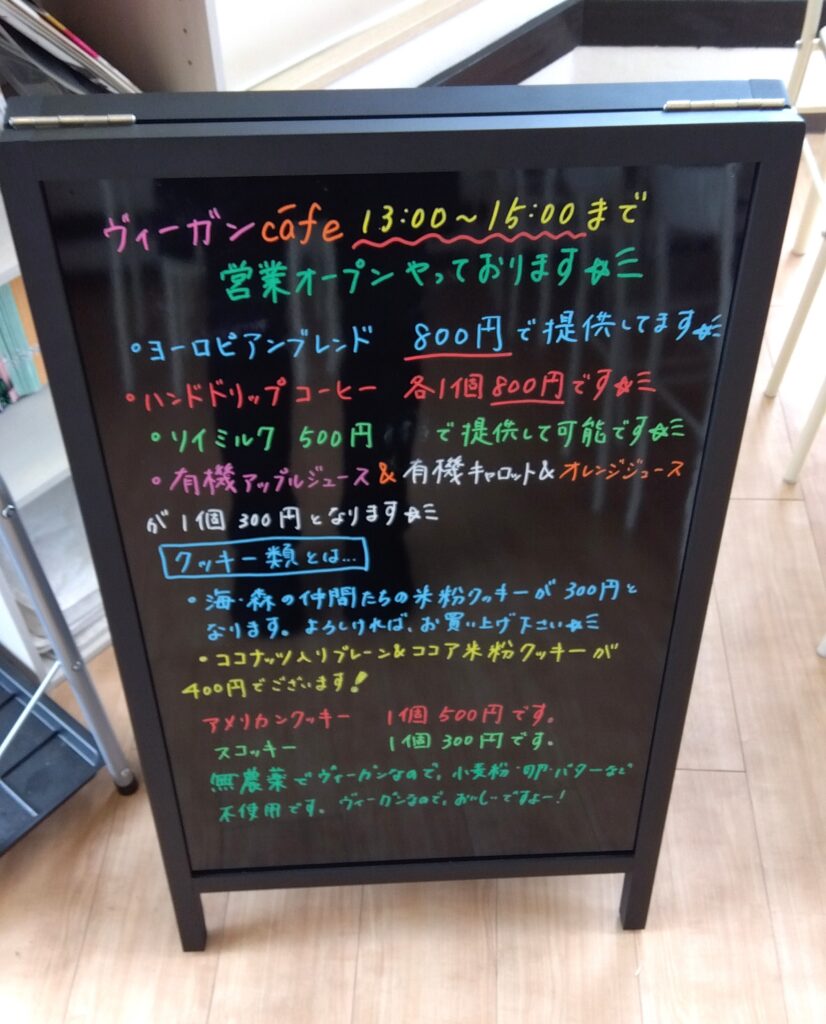 ヴィーガン cafe 13:00〜15:00まで
営業オープンやっております☆彡
・ヨーロピアンブレンド 800円で提供してます☆彡
・ハンドドリップコーヒー 各1個800円です☆彡
・ソイミルク 500円 で提供して可能です☆彡
・有機アップルジュース&有機キャロット&オレンジジュース
が1個300円となります☆彡
クッキー類とは...
・海・森の仲間たちの米粉クッキーが300円と
なります。よろしければ、お買い上げ下さい☆彡
・ココナッツ入りプレーン&ココア米粉クッキーが
400円でございます!
アメリカンクッキー 1個500円です。
スコッキー 1個300円です。
無農薬でヴィーガンなので、小麦粉・卵・バターなど
不使用です。ヴィーガンなので、おいしーですよー!